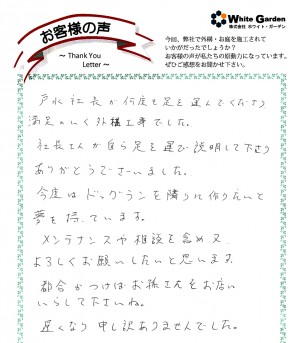 お客様の声
〜 Thank You
Letter 〜
White Garden
株式会社 ホワイト・ガーデン
今回、弊社で外構・お庭を施工されて
いかがだったでしょうか？
お客様の声が私たちの原動力になっています。
ぜひご感想をお聞かせ下さい。
戸水社長が何度も足を運んでくださり
満足のいく外構工事でした。
社長さんが自ら足を運び説明して下さり
ありがとうございました。
今度はドッグランを隣りに作りたいと
夢を持っています。
メンテナンスや相談を含め又
よろしくお願いしたいと思います。
都合がつけばお孫さんをお店に
いらして下さいね。
遅くなり申し訳ありませんでした。